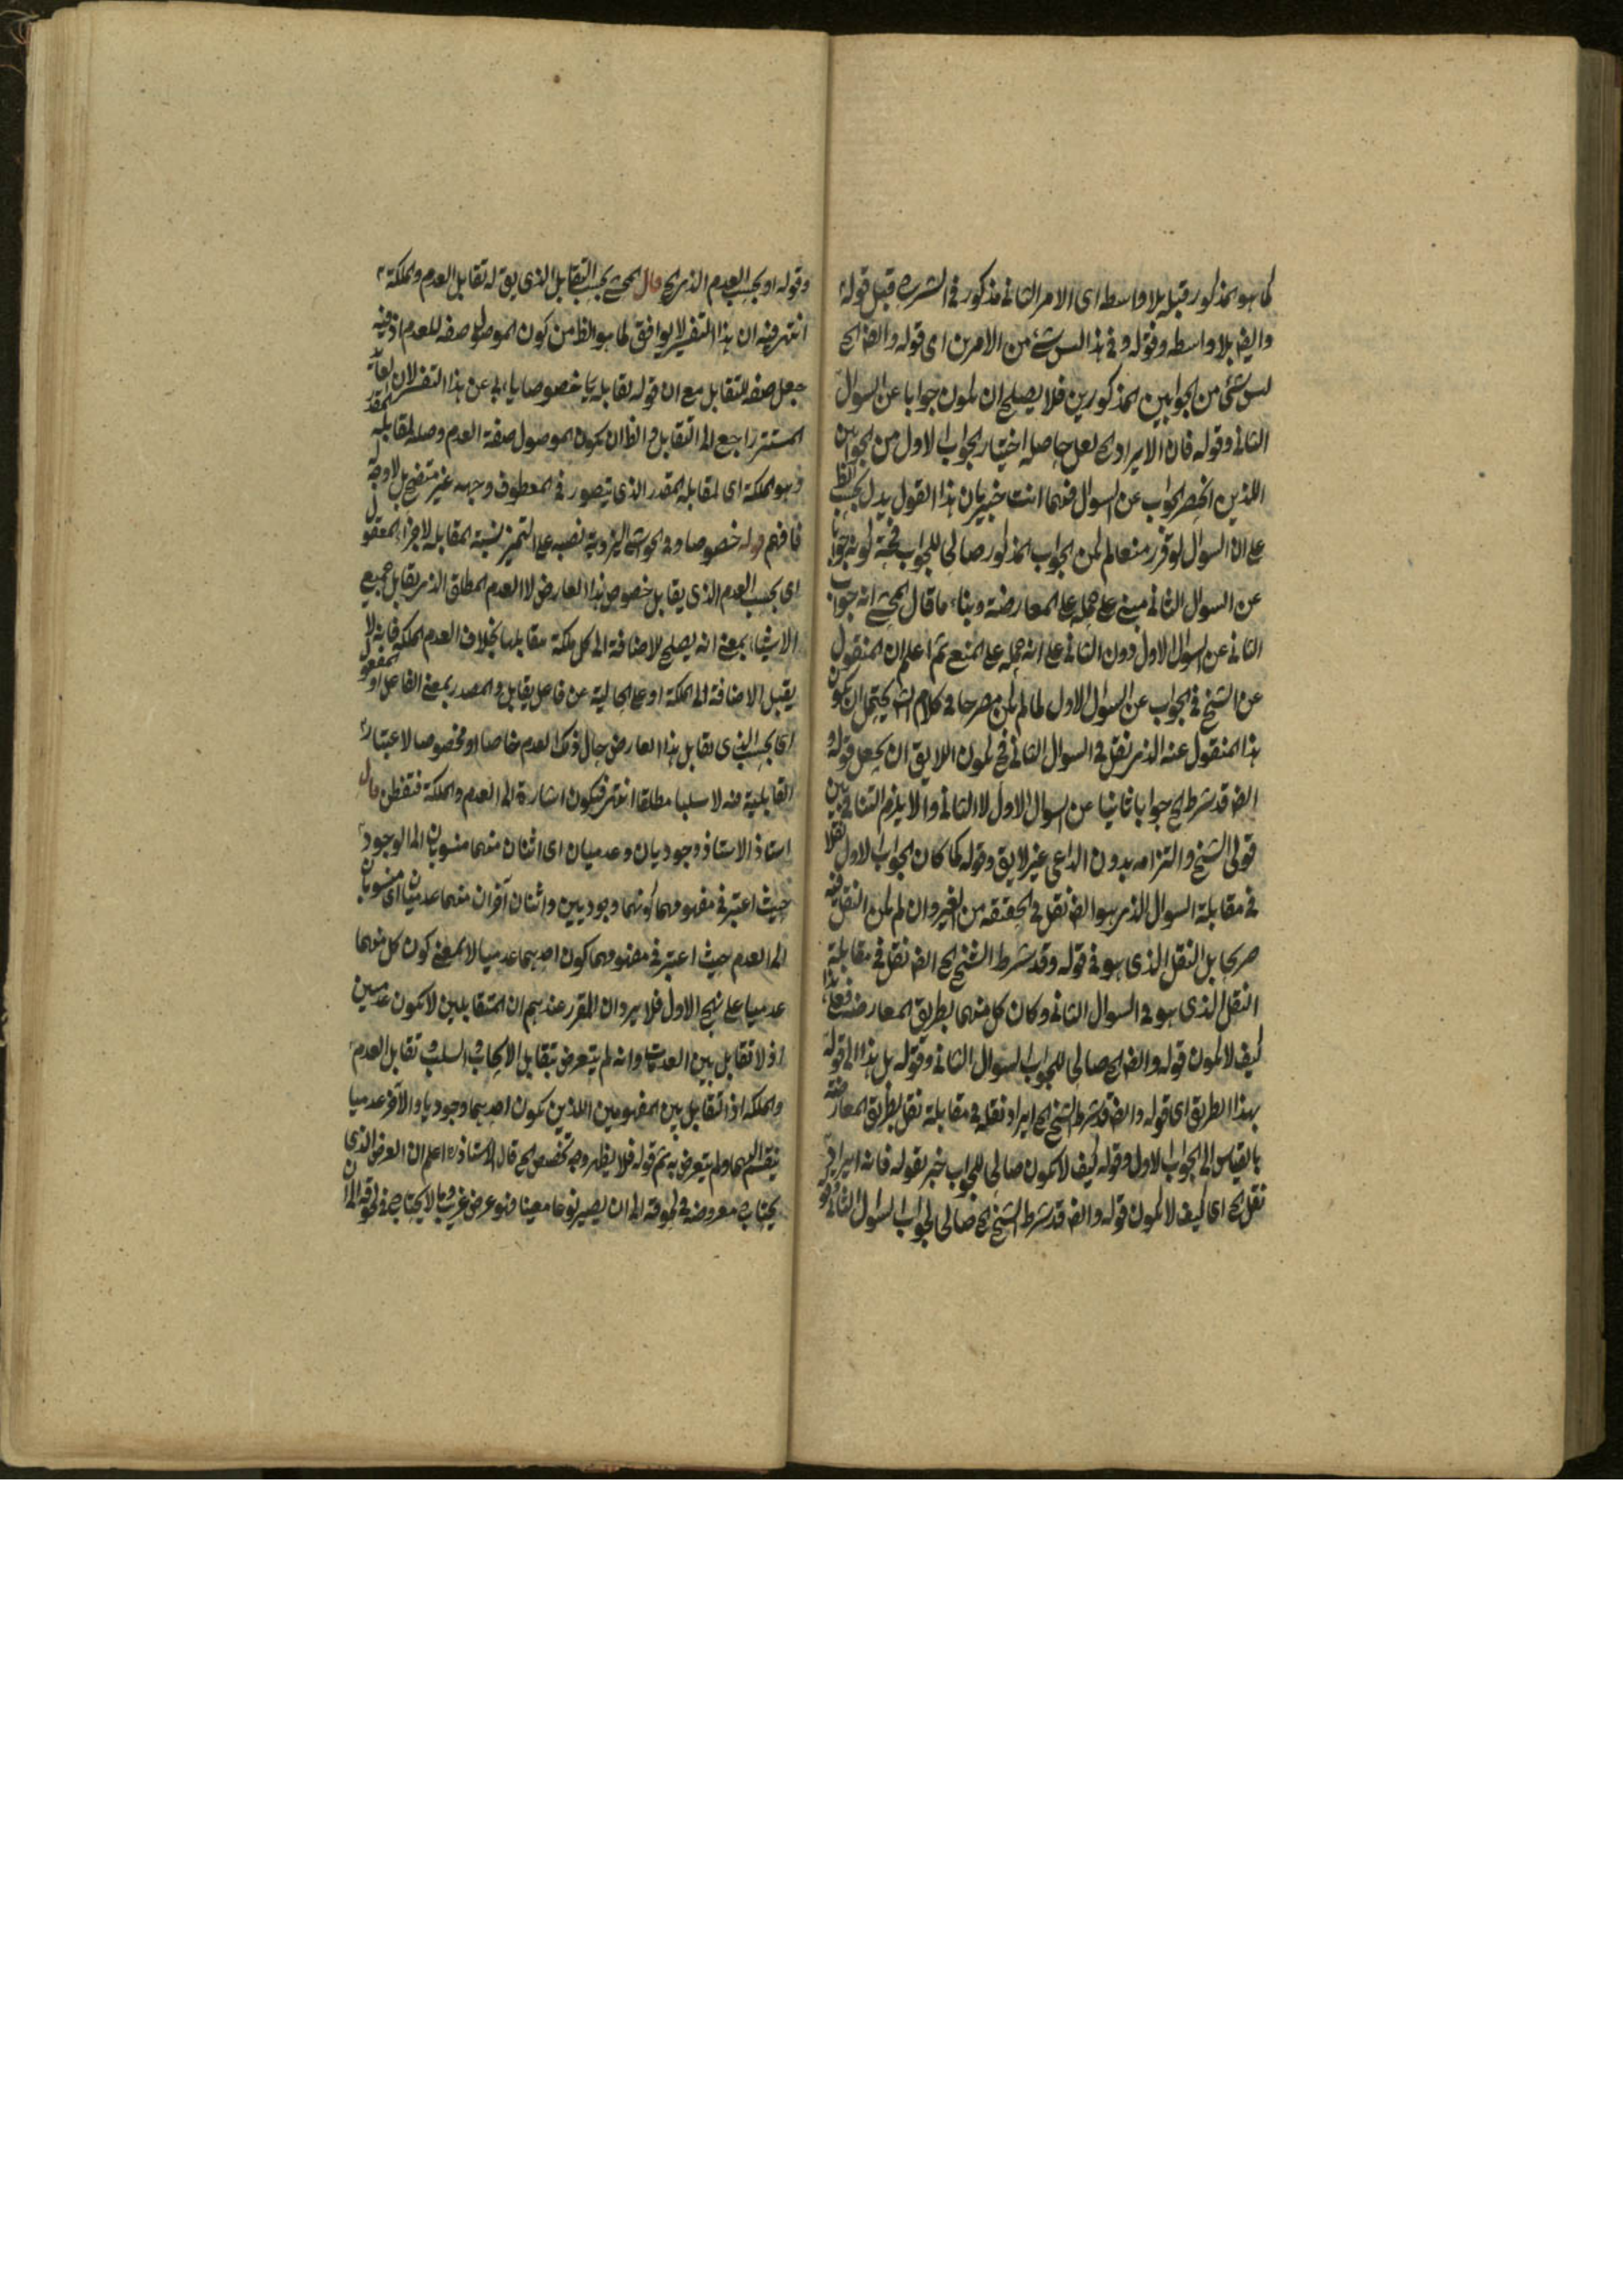 كما هو المذكور قبله بلا واسطه اى الامر الثانى مذكور فى الشرح قبل قوله
وايضا بلا واسطه وقوله وفى هذا ليس شئ من الامرين اى قوله وايضا الخ
ليس شئ من الجوابين المذكورين فلا يصلح ان يكون جوابا عن السوال
الثانى وقوله فان الايراد الخ لعل حاصله اختيار الجواب الاول من الجوابين
اللذين انحصر الجواب عن السوال فيهما انت خبير بان هذا القول يدل بحسب الظ
على ان السوال لو قرر منعا لم يكن الجواب المذكور صالحا للجواب
عن السوال الثانى مبنى على حمله على المعارضة وبناء ما قال المحشى انه جواب
الثانى عن السوال الاول دون الثانى على انه حمله على المنع ثم اعلم ان المنقول
عن الشيخ فى الجواب عن السوال الاول لما لم يكن مصرحا فى كلام الشيخ يحتمل ان يكون
هذا المنقول عنه الذى نقل فى السوال الثانى فح يكون اللايق ان يجعل قوله و
ايضا قد شرط الخ جوابا ثانيا عن السوال الاول لا الثانى والا يلزم التنافى بين
قولى الشيخ والتزامه بدون الداعى غير لايق وقوله كما كان الجواب الاول نقلا
فى مقابلة السوال الذى هو ايضا نقل فى الحقيقه من الغير وان لم يكن النقل فيه
صريحا بل النقل الذى هو فى قوله وقد شرط الشيخ الخ ايضا نقل فى مقابلة
النقل الذى هو فى السوال الثانى وكان كل منهما بطريق المعارضه فعلى هذا
كيف لا يكون قوله وايضا الخ صالحا للجواب السوال الثانى وقوله بل هذا اى قوله
بهذا الطريق اى قوله وايضا قد شرط الشيخ الخ ايراد نقله فى مقابلة نقل بطريق المعارضه
بالقياس الى الجواب الاول وقوله كيف لا يكون صالحا للجواب خبر لقوله فانه ايراد
نقل الخ اى كيف لا يكون قوله وايضا قد شرط الشيخ الخ صالحا لجواب السوال الثانى
وقوله او بحسب العدم الذى الخ قال المحشى بحسب التقابل الذى يقع له تقابل العدم والملكة
انتهى فيه ان هذا التفسير لا يوافق لما هو الظ من كون الموصول صفه للعدم اذ فيه
جعل صفه للتقابل مع ان قوله تقابله خصوصا يابى عن هذا التفسير لان
المستتر راجع الى التقابل والظ ان يكون الموصول صفة العدم وصله لمقابله
وهو الملكة اى لمقابله المقدر الذى يتصور فى المعطوف وجهه غير متضح بل لا وجه له
فافهم قوله خصوصا وفى الحواشى اليزدية نصبه على التميز لنسبة المقابله
اى بحسب العدم الذى يقابل خصوص هذا العارض لا العدم المطلق الذى يقابل جميع
الاشياء بمعنى انه يصلح للاضافة الى كل ملكة مقابلها بخلاف العدم الملكة فانه لا
يقبل الاضافة الى الملكة او على الحالية عن فاعل يقابل والمصدر بمعنى الفاعل او المفعول
اى بحسب الذى يقابل هذا العارض حال ذلك العدم خاصا او مخصوصا لاعتبار
القابلية فيه لا سلبا مطلقا انتهى فيكون اشارة الى العدم والملكة فتفطن قال
استاذ الاستاذ وجوديان وعدميان اى اثنان منهما منسوبان الى الوجود
حيث اعتبر فى مفهومهما كونهما وجوديين واثنان آخران منهما عدميان اى منسوبان
الى العدم حيث اعتبر فى مفهومهما كون احديهما عدميا لا بمعنى كون كل منهما
عدميا على نهج الاول فلا يرد ان المقرر عندهم ان المتقابلين لا يكون عدميين
اذ لا تقابل بين العدميات وانه لم يتعرض بتقابل الايجاب والسلب وتقابل العدم
والملكه اذ التقابل بين المفهومين اللذين يكون احديهما وجوديا والآخر عدميا
ينقسم اليهما ولم يتعرض به ثم قوله فلا يظهر وجه تخصيص الخ قال الاستاذ اعلم ان العرض الذى
يحتاج معروضه فى لحوقه الى ان يصير نوعا معينا فهو عرض غريب وما لا يحتاج فى لحوقه الى ان